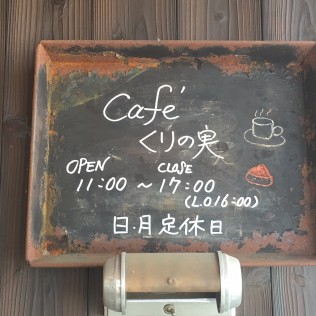 Café
くりの実
OPEN CLOSE
11:00 ～ 17:00
(L.O 16:00)
日.月 定休日